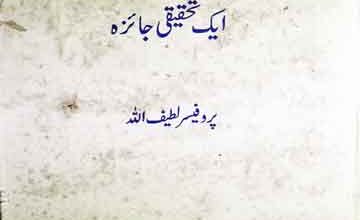 ایک تحقیقی جائزہ
پروفیسر لطیف اللہ